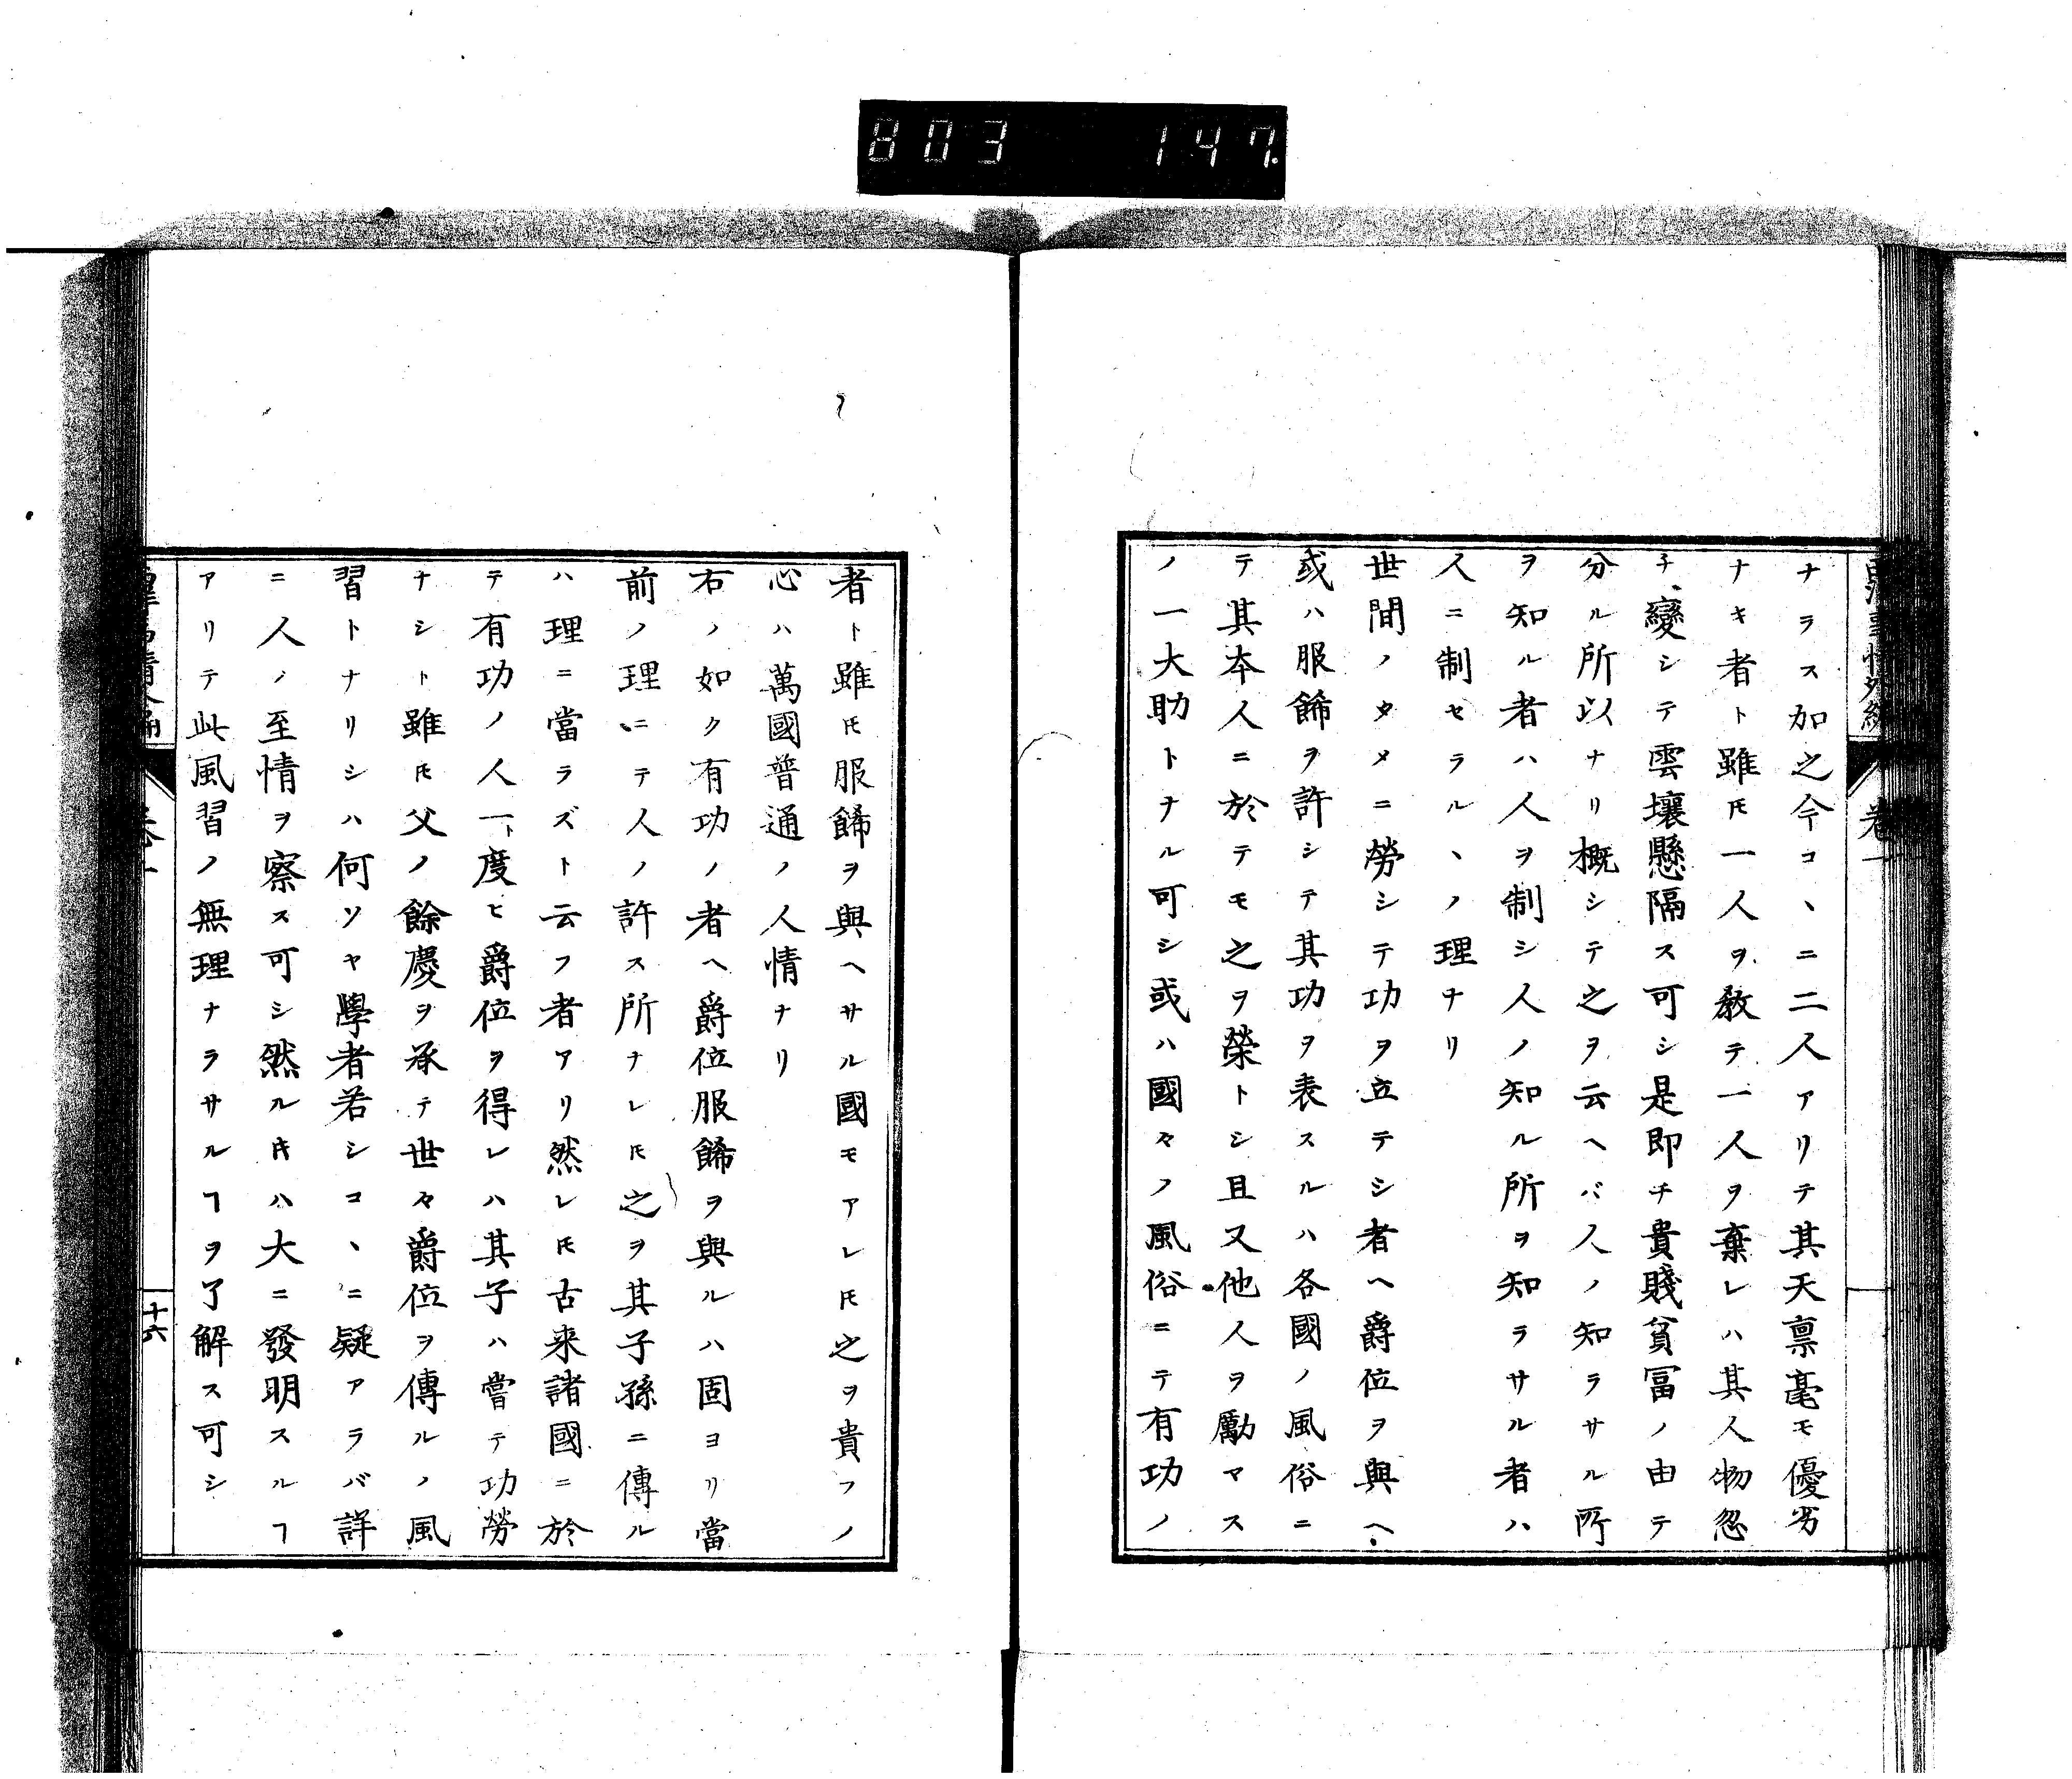 803 147.
ナラス加之今コヽニ二人アリテ其天禀毫モ優劣
ナキ者ト雖𪜈一人ヲ教テ一人ヲ棄レハ其人物忽
チ變シテ雲壤懸隔ス可シ是即チ貴賤貧冨ノ由テ
分ル所以ナリ概シテ之ヲ云ヘバ人ノ知ラサル所
ヲ知ル者ハ人ヲ制シ人ノ知ル所ヲ知ラサル者ハ
人ニ制セラルヽノ理ナリ
世間ノタメニ勞シテ功ヲ立テシ者ヘ爵位ヲ與ヘ
或ハ服餙ヲ許シテ其功ヲ表スルハ各國ノ風俗ニ
テ其本人ニ於テモ之ヲ榮トシ且又他人ヲ勵マス
ノ一大助トナル可シ或ハ國々ノ風俗ニテ有功ノ
者ト雖𪜈服餙ヲ與ヘサル國モアレ𪜈之ヲ貴フノ
心ハ萬國普通ノ人情ナリ
右ノ如ク有功ノ者ヘ爵位服餙ヲ與ルハ固ヨリ當
前ノ理ニテ人ノ許ス所ナレ𪜈之ヲ其子孫ニ傳ル
ハ理ニ當ラズト云フ者アリ然レ𪜈古来諸國ニ於
テ有功ノ人一ト度ヒ爵位ヲ得レハ其子ハ嘗テ功勞
ナシト雖𪜈父ノ餘慶ヲ承テ世々爵位ヲ傳ルノ風
習トナリシハ何ソヤ學者若シコヽニ疑アラバ詳
ニ人ノ至情ヲ察ス可シ然ル𬼀ハ大ニ發明スルヿ
アリテ此風習ノ無理ナラサルヿヲ了解ス可シ
十六